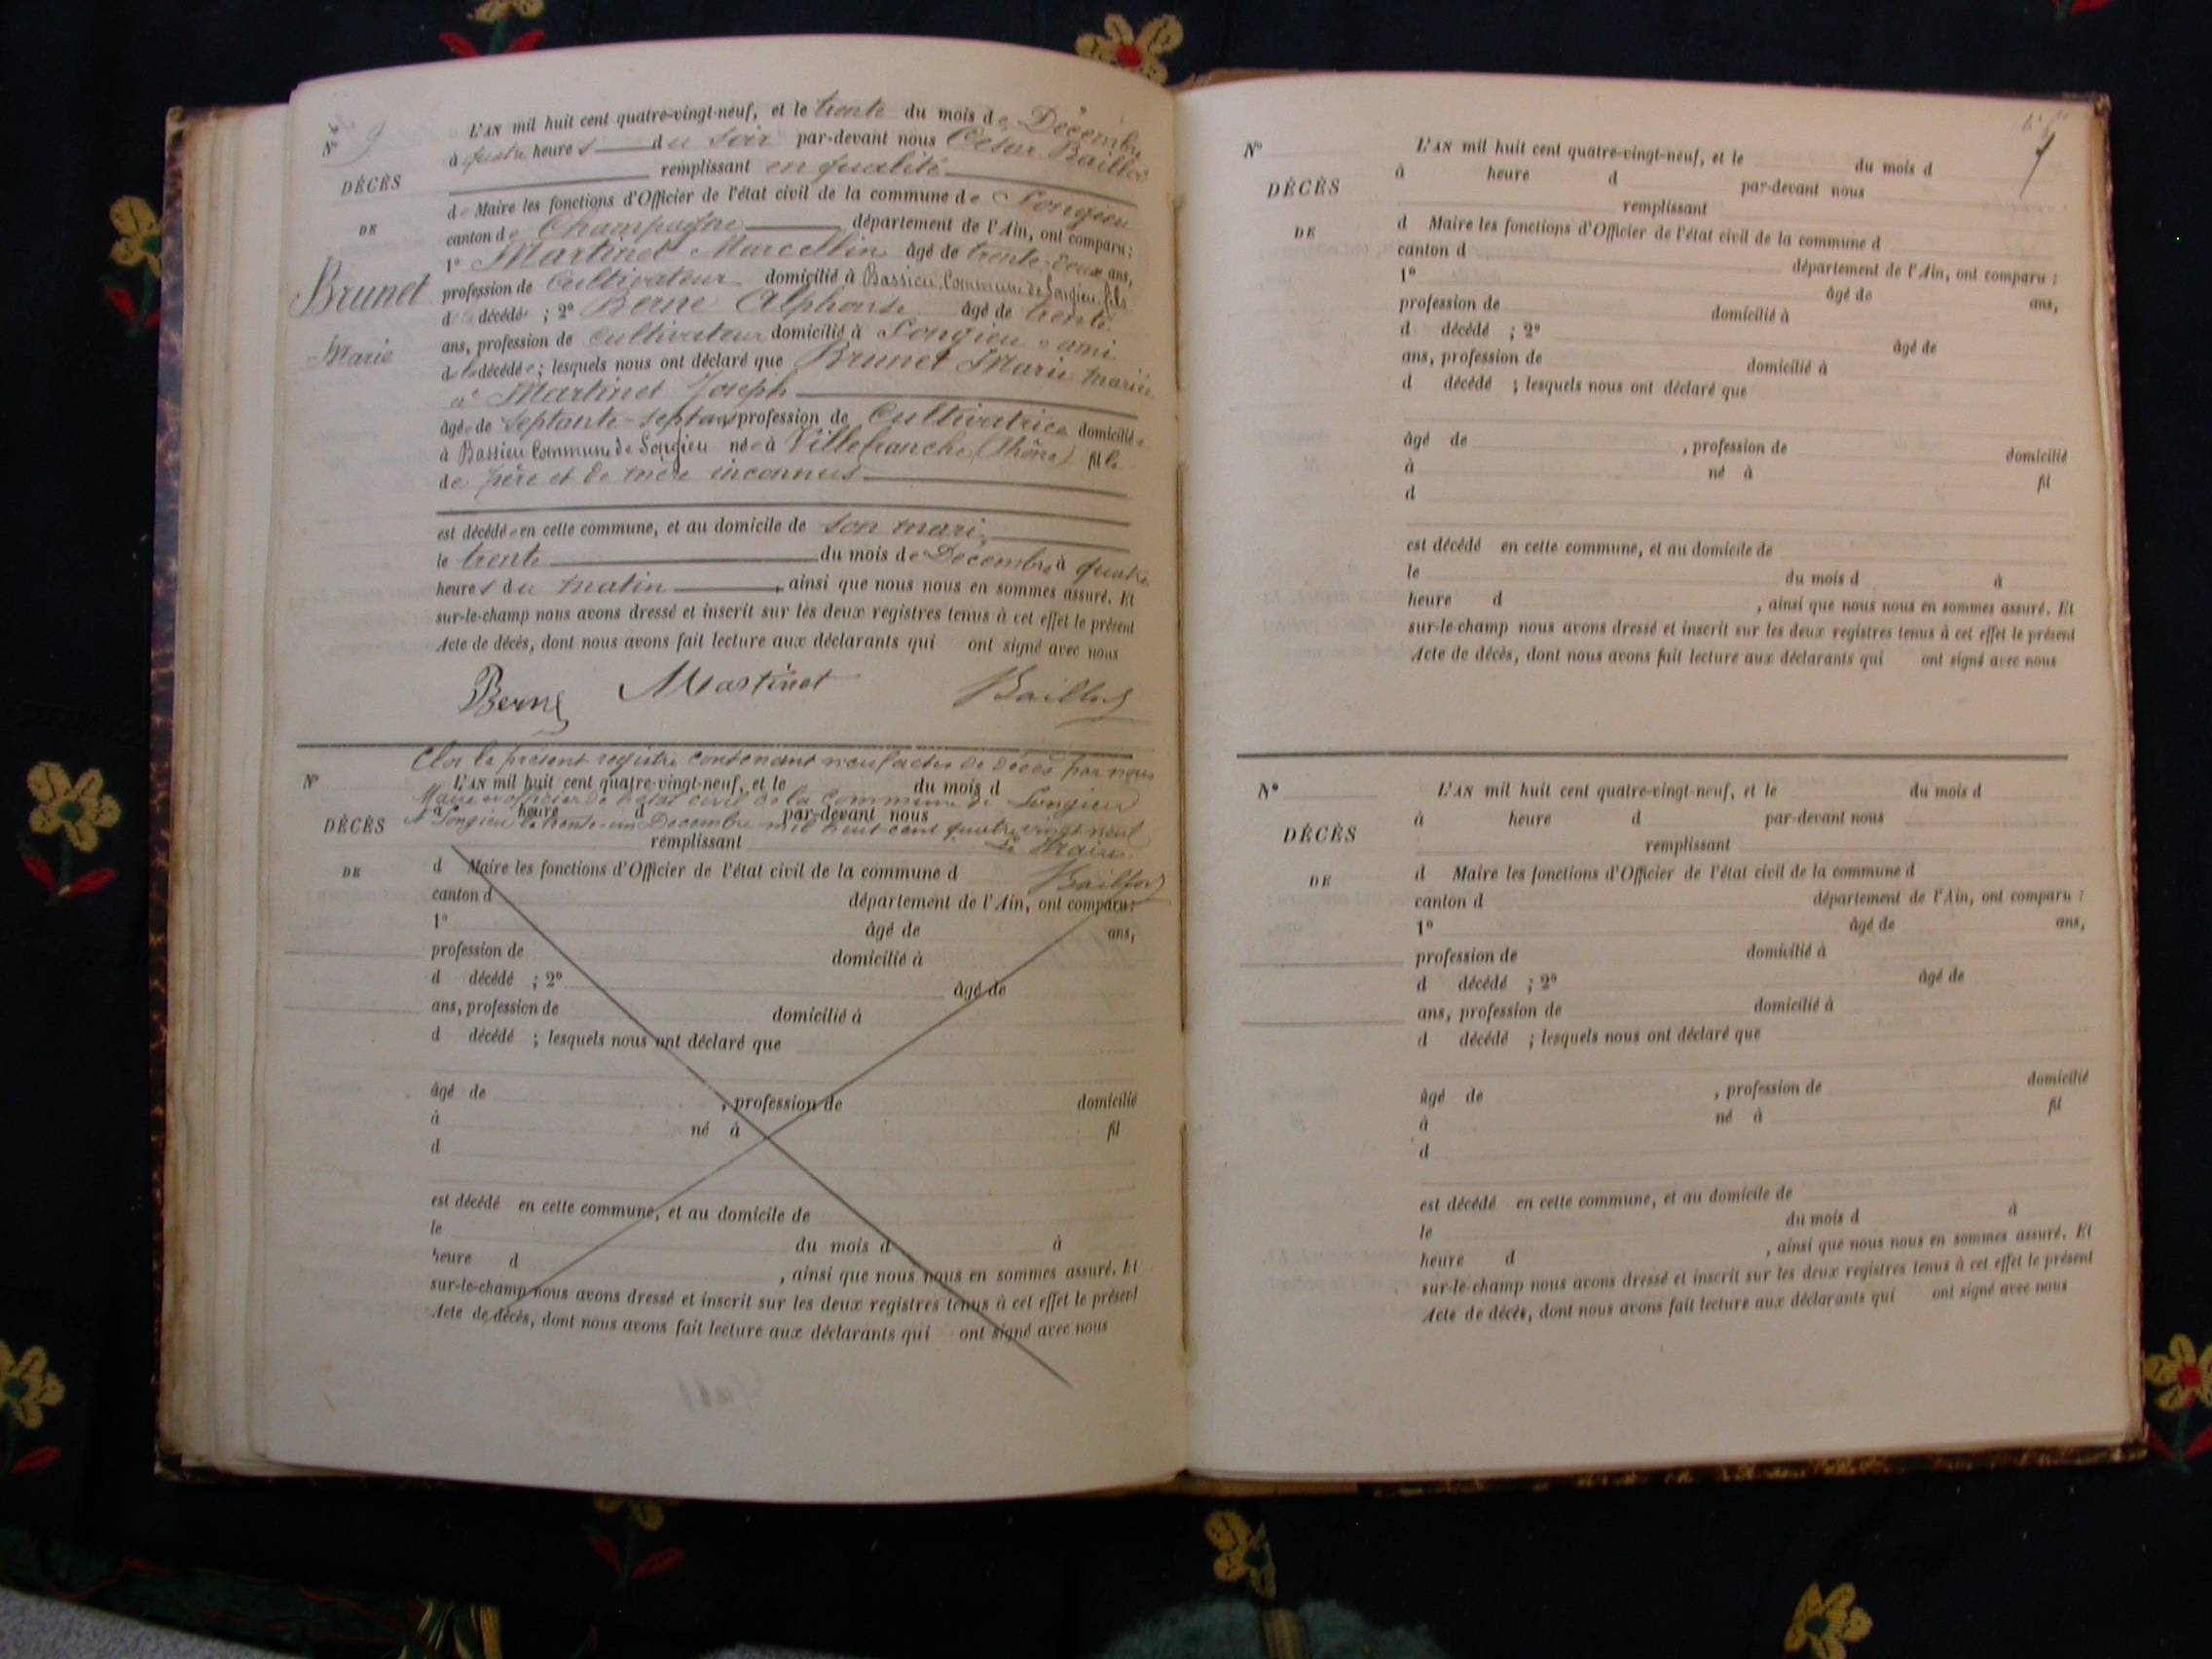 N° 9
DÉCÈS
DE
Brunet
Marie
L'AN mil huit cent quatre-vingt-neuf, et le trente du mois de Décembre
à quatre heures du soir par-devant nous César Baillod
remplissant en qualité
de Maire les fonctions d'Officier de l'état civil de la commune de Songieu
canton de Champagne département de l'Ain, ont comparu :
1° Martinet Marcellin âgé de trente-deux ans,
profession de Cultivateur domicilié à Bassieu, Commune de Songieu, fils
de la décédée ; 2° Berne Alphonse âgé de trente
ans, profession de cultivateur domicilié à Songieu ami
de la décédée ; lesquels nous ont déclaré que Brunet Marie mariée
à Martinet Joseph
âgée de septante-sept ans, profession de Cultivatrice domiciliée
à Bassieu Commune de Songieu née à Villefranche (Rhône) fille
de père et de mère inconnus
est décédée en cette commune, et au domicile de son mari,
le trente du mois de Décembre à quatre
heures du matin, ainsi que nous nous en sommes assuré. Et
sur-le-champ nous avons dressé et inscrit sur les deux registres tenus à cet effet le présent
Acte de décès, dont nous avons fait lecture aux déclarants qui ont signé avec nous
Berne Martinet Baillod
Clos le présent registre contenant neuf actes de décès par nous
N° L'AN mil huit cent quatre-vingt-neuf, et le du mois d
Maire et officier de l'état civil de la Commune de Songieu
à heure d par-devant nous
A Songieu le trente-un Décembre mil huit cent quatre vingt neuf
DÉCÈS
remplissant
Le Maire
DE
d Maire les fonctions d'Officier de l'état civil de la commune d
Baillod
canton d département de l'Ain, ont comparu :
1° âgé de ans,
profession de domicilié à
d décédé ; 2° âgé de
ans, profession de domicilié à
d décédé ; lesquels nous ont déclaré que
âgé de , profession de domicilié
à né à fil
d
est décédé en cette commune, et au domicile de
le du mois d à
heure d , ainsi que nous nous en sommes assuré. Et
sur-le-champ nous avons dressé et inscrit sur les deux registres tenus à cet effet le présent
Acte de décès, dont nous avons fait lecture aux déclarants qui ont signé avec nous
7
N°
DÉCÈS
DE
L'AN mil huit cent quatre-vingt-neuf, et le du mois d
à heure d par-devant nous
remplissant
d Maire les fonctions d'Officier de l'état civil de la commune d
canton d département de l'Ain, ont comparu :
1° âgé de ans,
profession de domicilié à
d décédé ; 2° âgé de
ans, profession de domicilié à
d décédé ; lesquels nous ont déclaré que
âgé de , profession de domicilié
à né à fil
d
est décédé en cette commune, et au domicile de
le du mois d à
heure d , ainsi que nous nous en sommes assuré. Et
sur-le-champ nous avons dressé et inscrit sur les deux registres tenus à cet effet le présent
Acte de décès, dont nous avons fait lecture aux déclarants qui ont signé avec nous
N°
DÉCÈS
DE
L'AN mil huit cent quatre-vingt-neuf, et le du mois d
à heure d par-devant nous
remplissant
d Maire les fonctions d'Officier de l'état civil de la commune d
canton d département de l'Ain, ont comparu :
1° âgé de ans,
profession de domicilié à
d décédé ; 2° âgé de
ans, profession de domicilié à
d décédé ; lesquels nous ont déclaré que
âgé de , profession de domicilié
à né à fil
d
est décédé en cette commune, et au domicile de
le du mois d à
heure d , ainsi que nous nous en sommes assuré. Et
sur-le-champ nous avons dressé et inscrit sur les deux registres tenus à cet effet le présent
Acte de décès, dont nous avons fait lecture aux déclarants qui ont signé avec nous